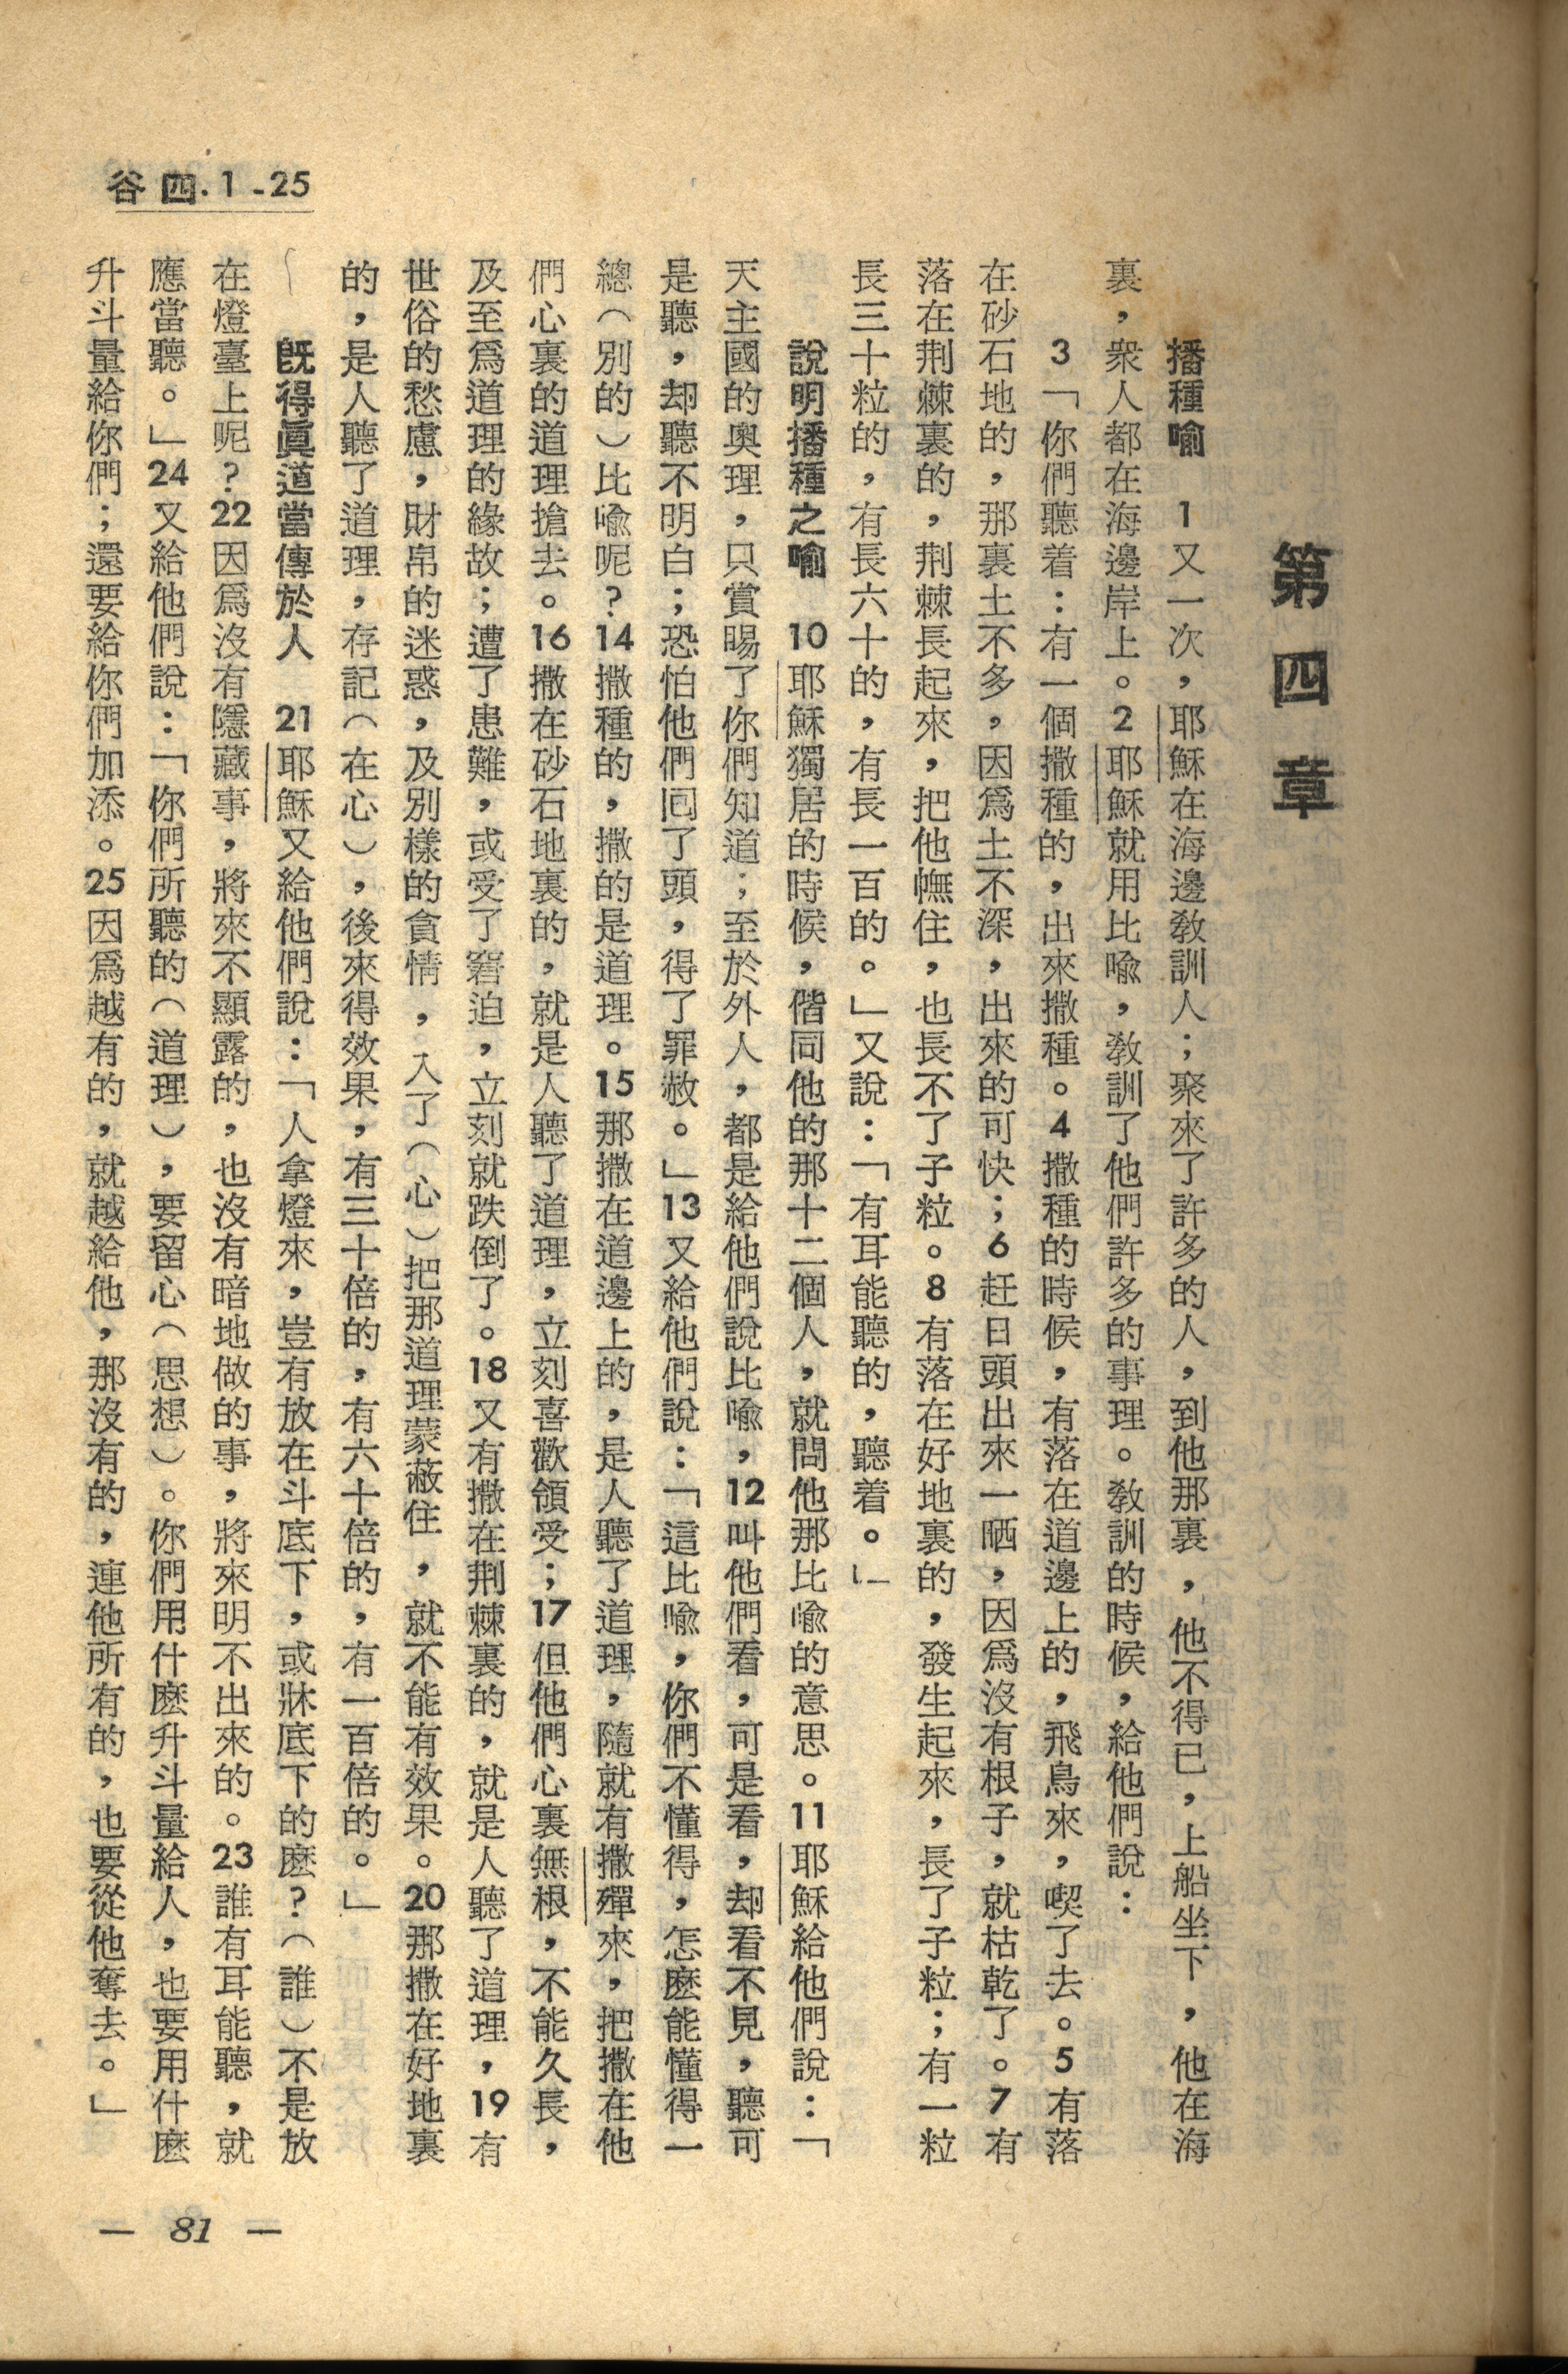 谷四.1-25
第四章
播種喻　1又一次，耶穌在海邊敎訓人；聚來了許多的人，到他那裏，他不得已，上船坐下，他在海
裏，衆人都在海邊岸上。2耶穌就用比喩，敎訓了他們許多的事理。敎訓的時候，給他們說：
3「你們聽着：有一個撒種的，出來撒種。4撒種的時候，有落在道邊上的，飛鳥來，喫了去。5有落
在砂石地的，那裏土不多，因爲土不深，出來的可快；6赶日頭出來一晒，因爲沒有根子，就枯乾了。7有
落在荆棘裏的，荆棘長起來，把他幠住，也長不了子粒。8有落在好地裏的，發生起來，長了子粒；有一粒
長三十粒的，有長六十的，有長一百的。」又說：「有耳能聽的，聽着。」
說明播種之喻　10耶穌獨居的時候，偕同他的那十二個人，就問他那比喩的意思。11耶穌給他們說：「
天主國的奥理，只賞賜了你們知道；至於外人，都是給他們說比喩，12叫他們看，可是看，却看不見，聽可
是聽，却聽不明白；恐怕他們囘了頭，得了罪赦。」13又給他們說：「這比喩，你們不懂得，怎麽能懂得一
總（別的）比喩呢？14撒種的，撒的是道理。15那撒在道邊上的，是人聽了道理，隨就有撒殫來，把撒在他
們心裏的道理搶去。16撒在砂石地裏的，就是人聽了道理，立刻喜歡領受；17但他們心裏無根，不能久長，
及至爲道理的緣故；遭了患難，或受了窘迫，立刻就跌倒了。18又有撒在荆棘裏的，就是人聽了道理，19有
世俗的愁慮，財帛的迷惑，及別樣的貪情，入了（心）把那道理蒙蔽住，就不能有效果。20那撒在好地裏
的，是人聽了道理，存記（在心），後來得效果，有三十倍的，有六十倍的，有一百倍的。」
旣得眞道當傳於人　21耶穌又給他們說：「人拿燈來，豈有放在斗底下，或牀底下的麽？（誰）不是放
在燈臺上呢？22因爲沒有隱藏事，將來不顯露的，也沒有暗地做的事，將來明不出來的。23誰有耳能聽，就
應當聽。」24又給他們說：「你們所聽的（道理），要留心（思想）。你們用什麽升斗量給人，也要用什麽
升斗量給你們；還要給你們加添。25因爲越有的，就越給他，那沒有的，連他所有的，也要從他奪去。」
— 81 —